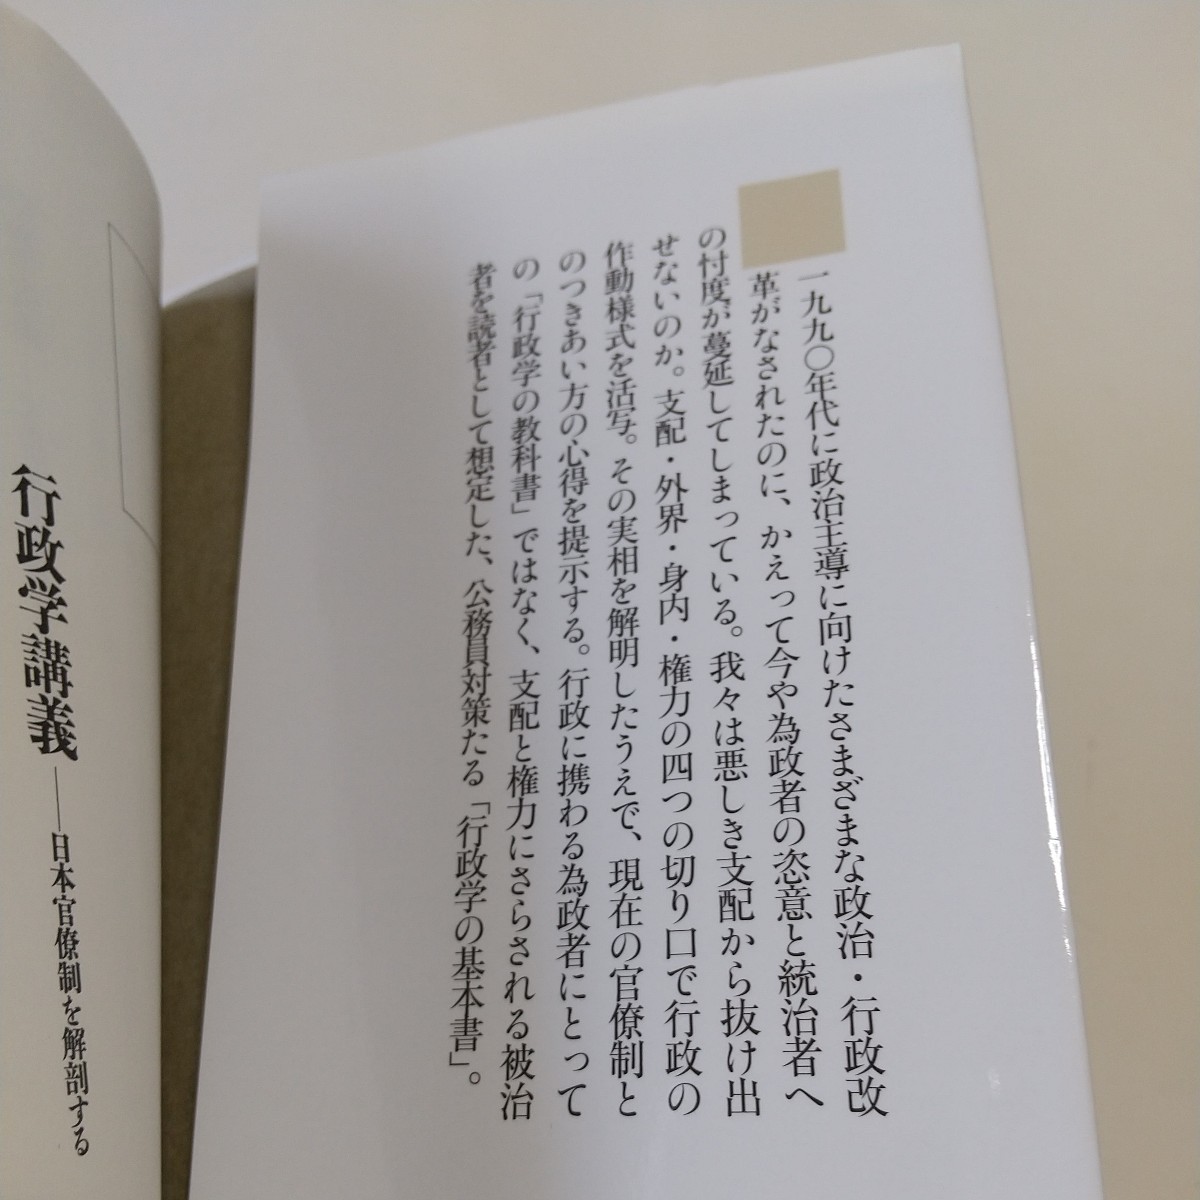 一九九〇年代に政治主導に向けたさまざまな政治・行政改
革がなされたのに、かえって今や為政者の恣意と統治者へ
の忖度が蔓延してしまっている。我々は悪しき支配から抜け出
せないのか。支配・外界・身内・権力の四つの切り口で行政の
作動様式を活写。その実相を解明したうえで、現在の官僚制と
のつきあい方の心得を提示する。行政に携わる為政者にとって
の「行政学の教科書」ではなく、支配と権力にさらされる被治
者を読者として想定した、公務員対策たる「行政学の基本書」。
行政学講義――日本官僚制を解剖する